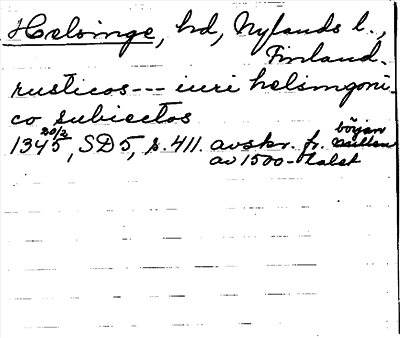 Helsinge, hd, Nylands l.,
Finland.
rusticos --- iuri helsingoni-
co subiectos
1345 20/2, SD5, s. 411. avskr. fr. början
av 1500-talet